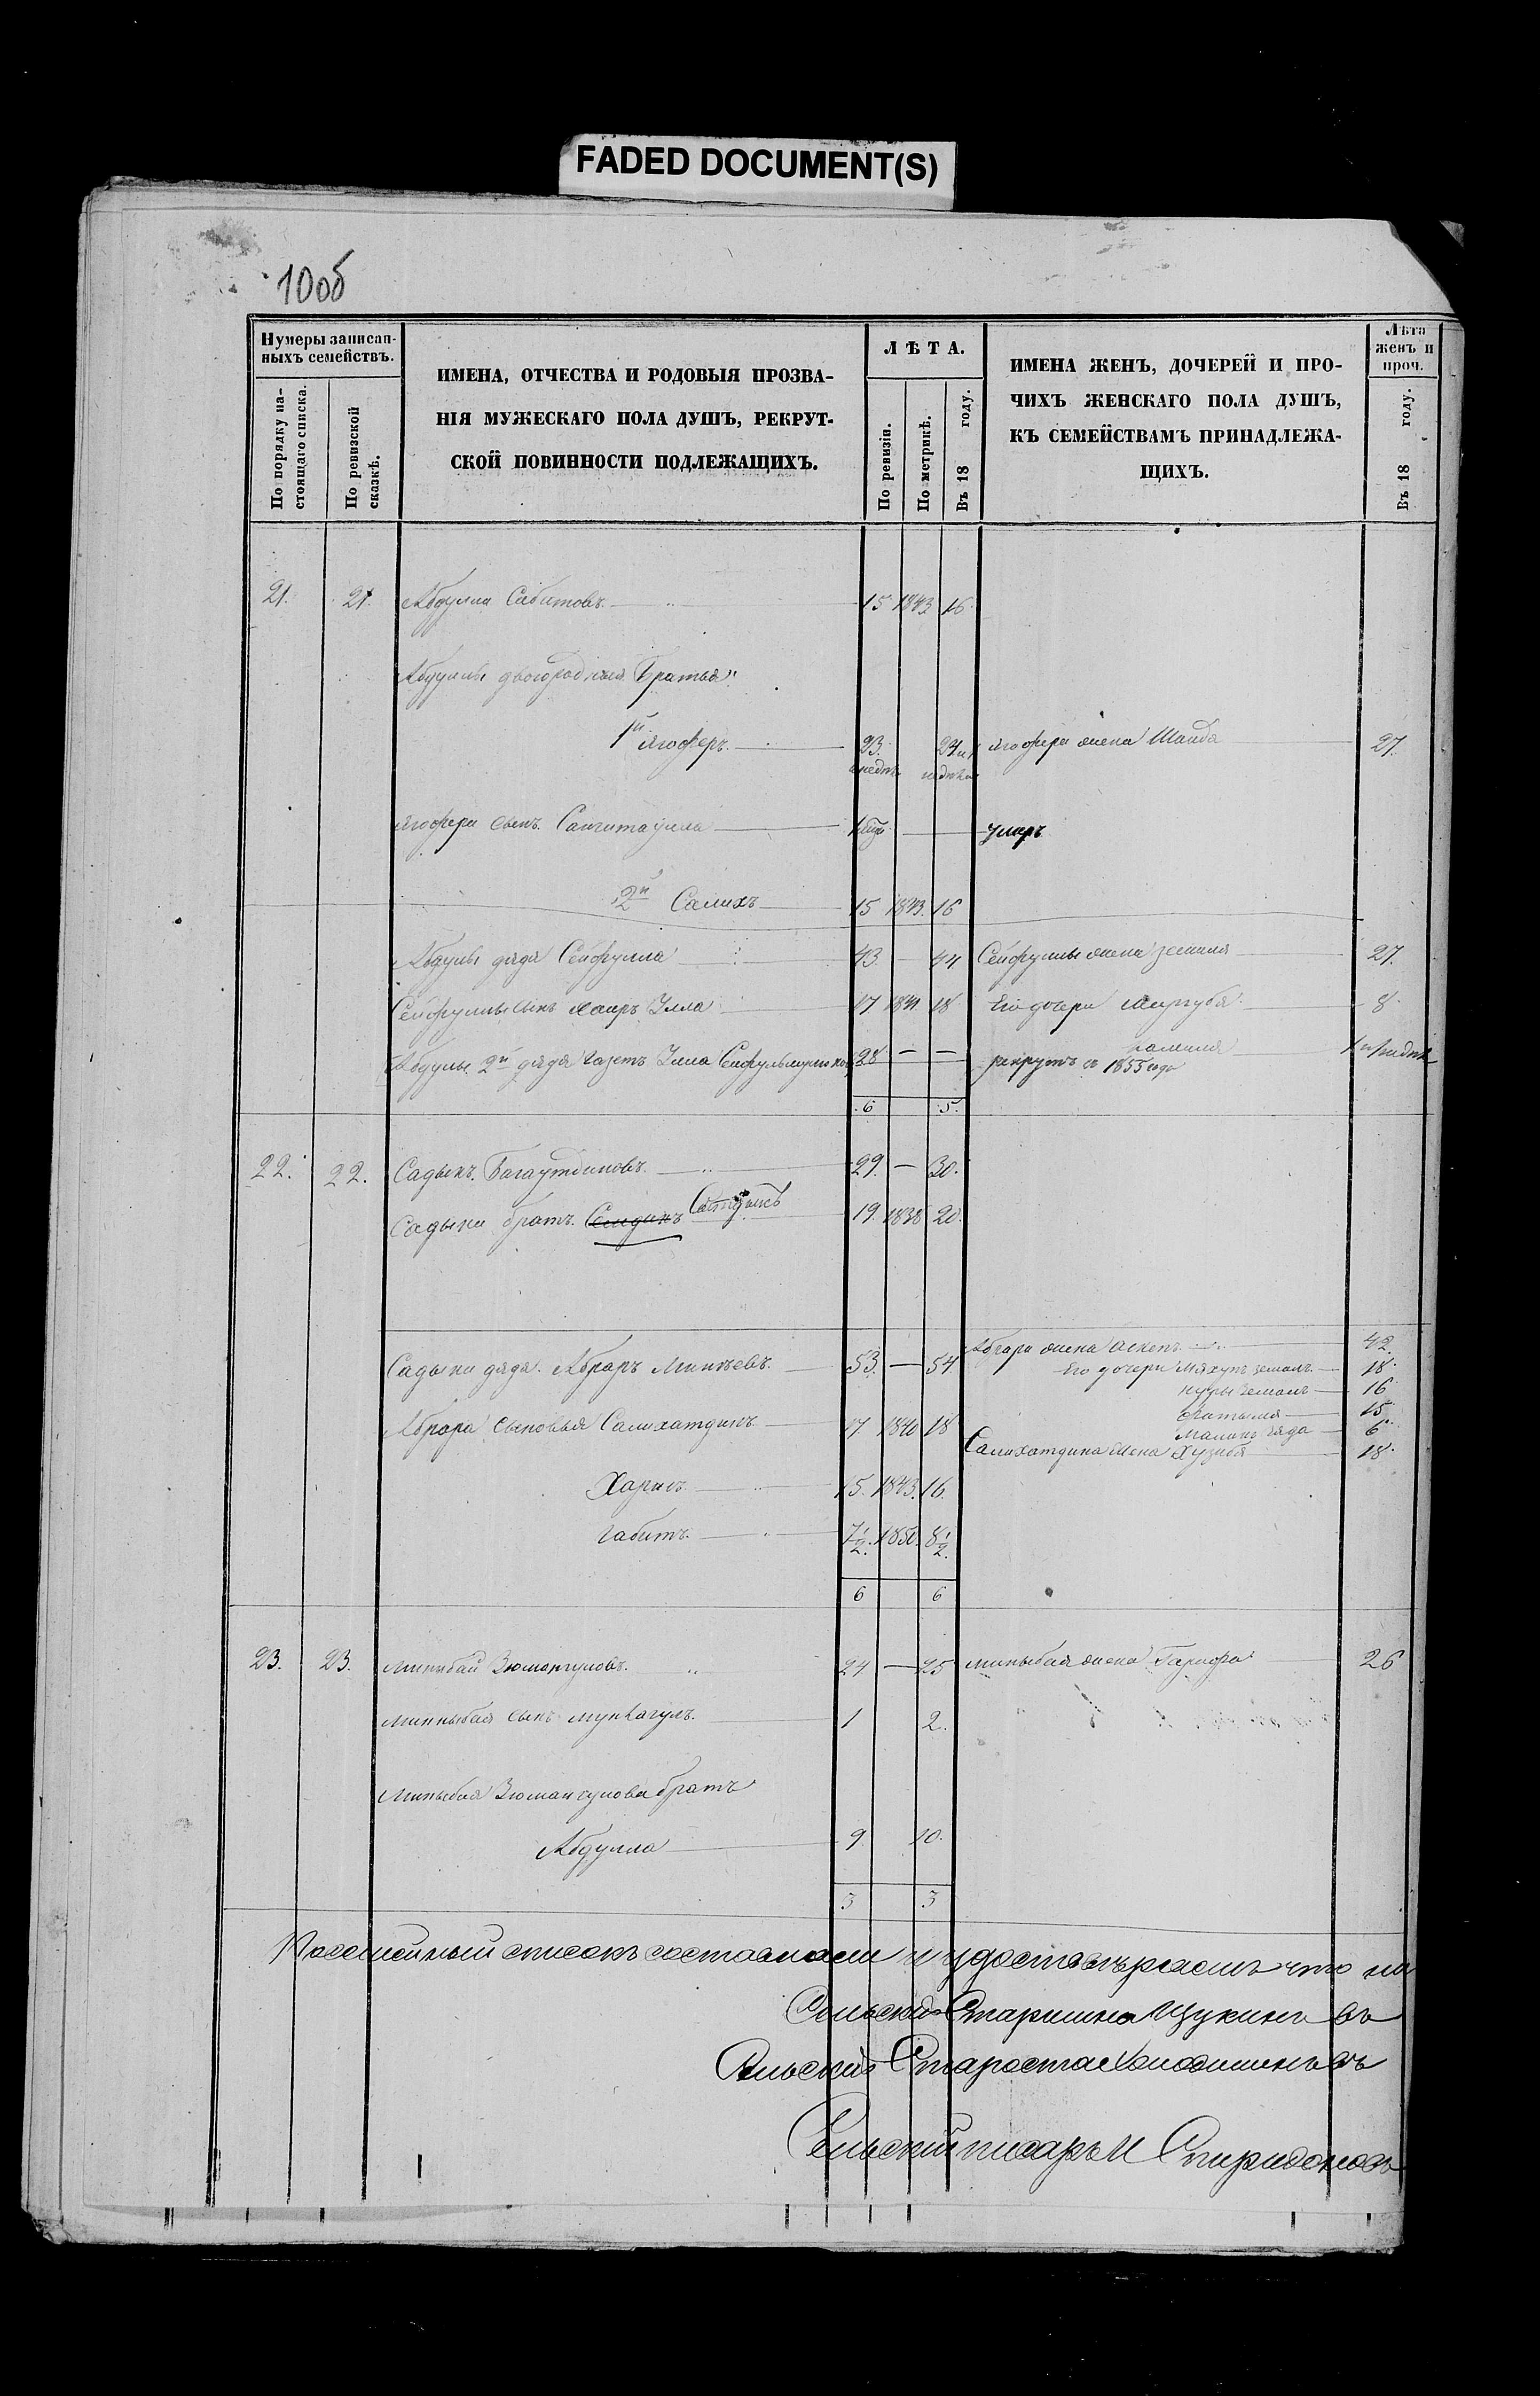 FADED DOCUMENT(S)
10об
Нумеры записан-
ныхъ семействъ.
По порядку на-
стоящаго списка.
По ревизской
сказкѣ.
ИМЕНА, ОТЧЕСТВА И РОДОВЫЯ ПРОЗВА-
НІЯ МУЖЕСКАГО ПОЛА ДУШЪ, РЕКРУТ-
СКОЙ ПОВИННОСТИ ПОДЛЕЖАЩИХЪ.
ЛѢТА.
По ревизіи.
По метрикѣ.
Въ 18 году.
ИМЕНА ЖЕНЪ, ДОЧЕРЕЙ И ПРО-
ЧИХЪ ЖЕНСКАГО ПОЛА ДУШЪ,
КЪ СЕМЕЙСТВАМЪ ПРИНАДЛЕЖА-
ЩИХЪ.
Лѣта
женъ и
проч.
Въ 18 году.
21. 21. Абдулла Сабитовъ 15 1843 16
Абдуллы двоюродныя Братья
1й Ягоферъ 23. 24 Ягофера жена Шаида 27.
Ягофера сынъ Сангитаулла умеръ
2й Салихъ 15 1843. 16
Абдулы дядя Сейфулла 43 — 44 Сейфуллы жена Земиля 27.
Сейфуллы сынъ Хаиръ Улла 17 1841 18 Его дочери Миргуба 8
Абдулы 2й дядя Улла 28 — — рекрутъ съ 1855 года
6 5.
22. 22. Садыкъ Багаутдиновъ 29. — 30.
Садыка братъ 19. 1838 20.
Садыка дядя Абраръ Минѣевъ 53. — 54 Абрара жена 42.
Его дочери 18
16
15
6
Абрара сыновья Салихатдинъ 17 1840 18 Салихатдина жена Хузибя 18
Харисъ 15. 1843. 16.
Габитъ 7½. 1850. 8½.
6 6
23. 23. Миныбай Зюмангуловъ 24 — 25 Миныбая жена Гарифа 26
Миныбая сынъ Мункагулъ 1 2.
Миныбая Зюмангулова братъ
Абдулла 9 10.
3 3
Посемейный списокъ составляли и удостовѣряемъ что на
Сельскій Старшина Щукинъ въ
Сельскій Староста
Сельскій писарь И Спиридоновъ